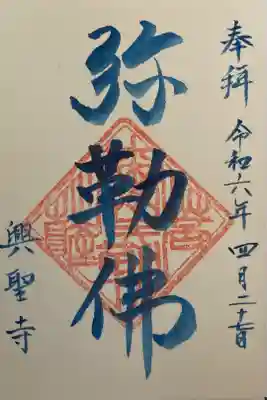 奉拝 令和六年 四月二十七日
弥勒佛
興聖寺